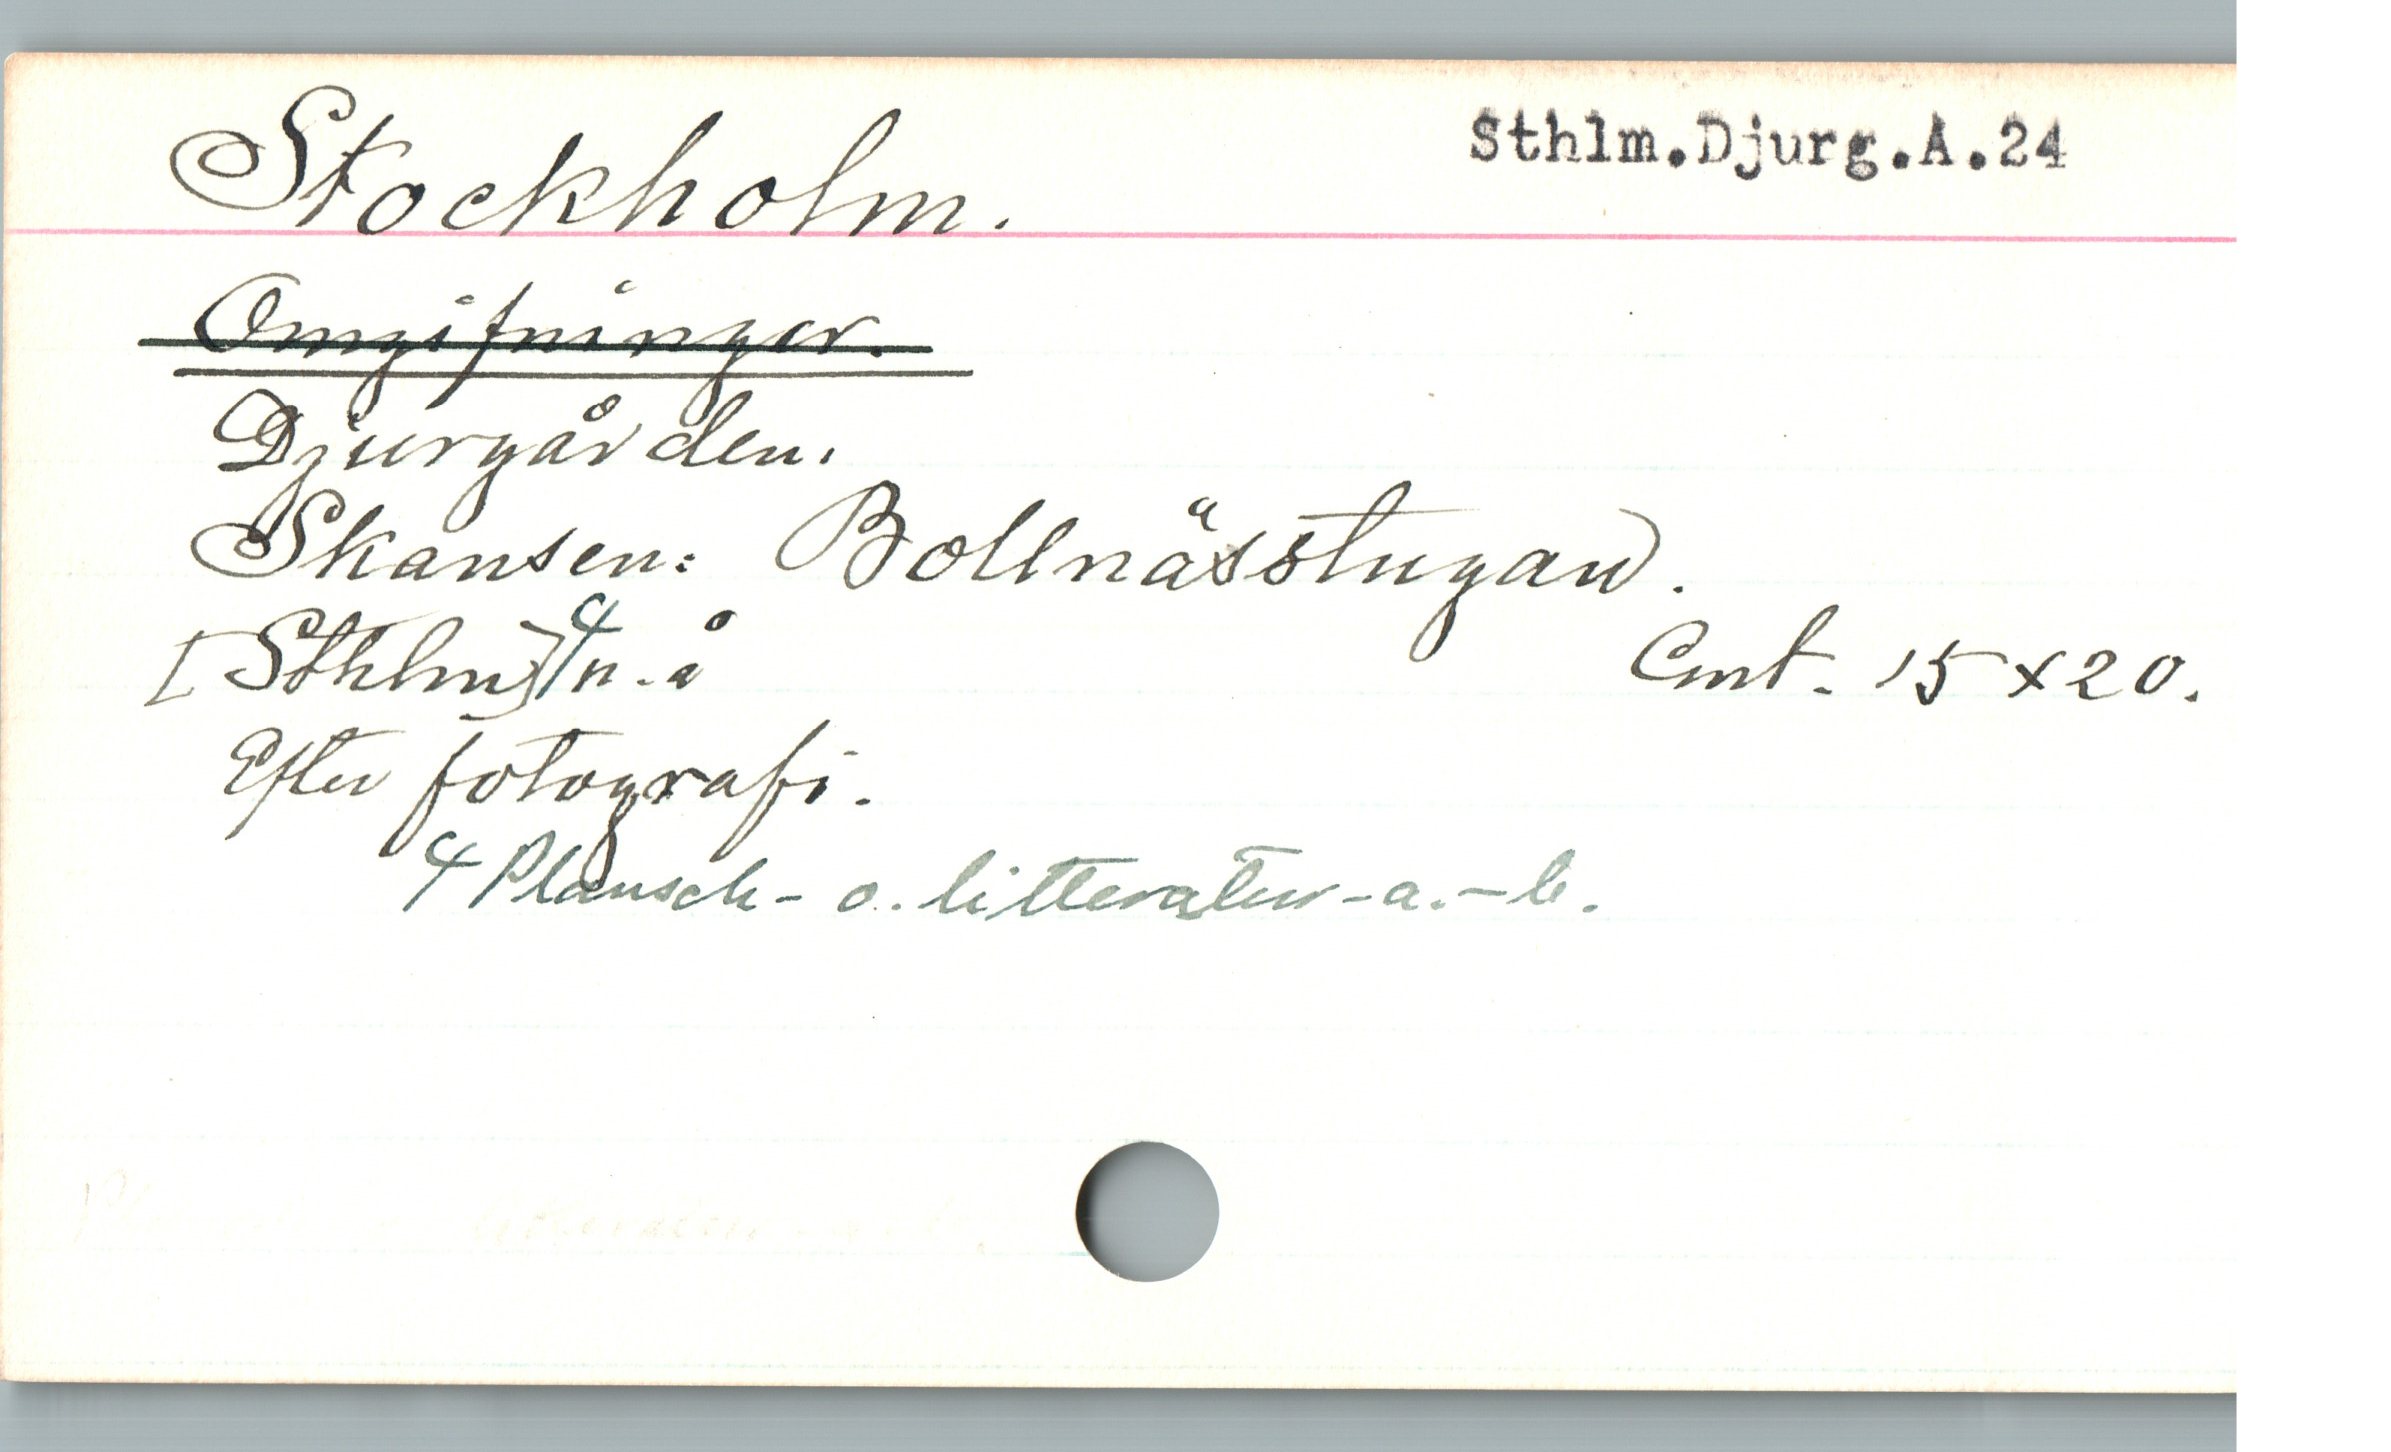 Stockholm.
Sthlm.Djurg.A.24
Omgifningar.
Djurgården.
Skansen: Bollnässtugan.
[Sthlm] n.å Cmt. 15 x 20.
Efter fotografi.
Plansch- o. litteratur-a.-b.